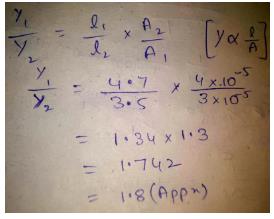 Y₁/Y₂ = l₁/l₂ × A₂/A₁ [Y ∝ l/A]
Y₁/Y₂ = 4.7/3.5 × 4×10⁻⁵/3×10⁻⁵
= 1.34 × 1.3
= 1.742
= 1.8 (Appx)